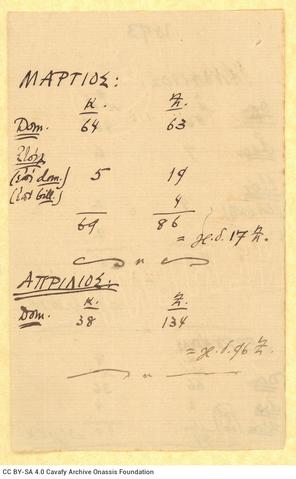 ΜΑΡΤΙΟΣ:
κ. ζ.
Dom. 64 63
(ἐπὶ dom.) 5 19
(ἐπὶ bill.) 4
69 86
= χ. δ. 17 ζ.
ΑΠΡΙΛΙΟΣ:
κ. ζ.
Dom. 38 134
= χ. δ. 96 ζ.
CC BY-SA 4.0 Cavafy Archive Onassis Foundation